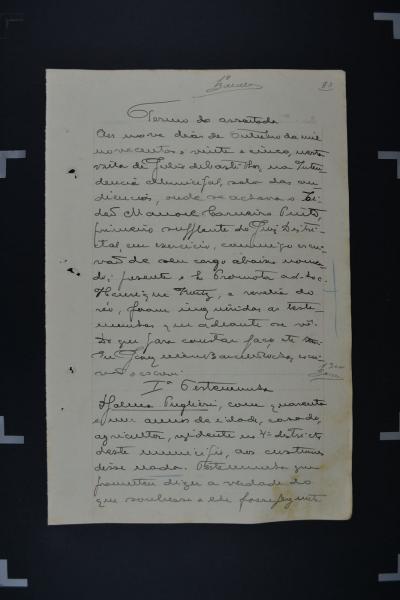 83
Termo de assentada
Aos nove dias de Outubro de mil
novecentos e vinte e cinco, nesta
villa de Julio de Castilhos, na Inten-
dencia Municipal, sala das au-
diencias, onde se achava o Ci-
dadão Manoel Carneiro Pinto,
primeiro supplente do Juiz Distri-
tal, em exercicio, commigo escri-
vão de seu cargo abaixo nomea-
do; presente o Promotor ad-hoc
Henrique, e revelia do
réo, foram inquiridas as teste-
munhas que adiante se vê.
Do que para constar faço este
Eu, escri-
vão o escrevi.
1ª Testemunha
Pugliesi, com quarenta
e um annos de idade, casado,
agricultor, residente no 4º districto
deste municipio, aos costumes
disse nada. Testemunha que
prometteu dizer a verdade do
que soubesse e lhe fosse pergun-